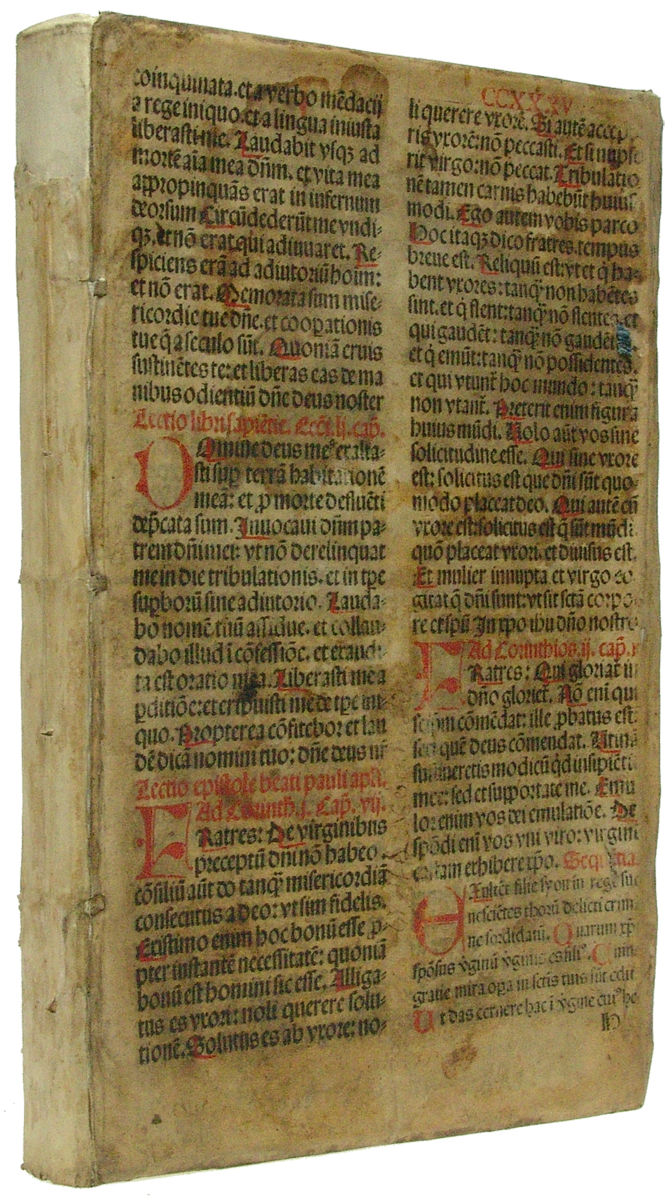 coinquinata. et a verbo mēdacij
a rege iniquo. et a lingua iniusta
liberasti me. Laudabit vsqꝫ ad
mortē aīa mea dn̄m. et vita mea
appropinquās erat in infernum
deorsum Circūdederūt me vndi-
qꝫ. et nō erat qui adiuuaret. Re-
spiciens erā ad adiutoriū hoīm:
et nō erat. Memorata sum mise-
ricordie tue dn̄e. et cooꝑationis
tue q̄ a seculo sūt. Quoniā eruis
sustinētes te: et liberas eas de ma
nibus odientiū dn̄e deus noster
Lectio libri sapiētie. Ecc̄i. lj. cap̄.
DOmine deus meꝰ exalta-
sti suꝑ terrā habitationē
meā: et ꝓ morte defluēti
dep̄cata sum. Inuocaui dn̄m pa-
trem dn̄i mei: vt nō derelinquat
me in die tribulationis. et in tꝑe
suꝑborū sine adiutorio. Lauda-
bo nomē tuū assidue. et collau-
dabo illud ī cōfessiōe. et exaudi-
ta est oratio mea. Liberasti me a
ꝑditiōe: et eripuisti me de tꝑe ini-
quo. Propterea cōfitebor et lau
dē dicā nomini tuo: dn̄e deus nr̄
Lectio epistole beati pauli apl̄i.
Ad Corinth. j. Cap̄. vij.
FRatres: De virginibus
preceptū dn̄i nō habeo.
cōsiliū aūt do tanqꝫ misericordiā
consecutus a deo: vt sim fidelis.
Existimo enim hoc bonū esse ꝓ-
pter instantē necessitatē: quoniā
bonū est homini sic esse. Alliga-
tus es vxori: noli querere solu-
tionē. Solutus es ab vxore: no-
CCXXXV
li querere vxorē. Si autē accep
ris vxorē: nō peccasti. Et si nupse
rit virgo: nō peccat. Tribulatio
nē tamen carnis habebūt huius
modi. Ego autem vobis parco
Hoc itaqꝫ dico fratres. tempus
breue est. Reliquū est: vt et q̄ ha-
bent vxores: tanqꝫ non habētes
sint. et q̄ flent: tanqꝫ nō flentes. et
qui gaudēt: tanqꝫ nō gaudētes
et q̄ emūt: tanqꝫ nō possidentes.
et qui vtunt̄ hoc mundo: tanqꝫ
non vtant̄. Preterit enim figura
huius mūdi. Nolo aūt vos sine
solicitudine esse. Qui sine vxore
est: solicitus est que dn̄i sūt quo-
modo placeat deo. Qui autē cū
vxore est: solicitus est q̄ sūt mūdi
quō placeat vxori. et diuisus est.
Et mulier innupta et virgo co-
gitat q̄ dn̄i sunt: vt sit sctā corpo
re et spū In xp̄o ihū dn̄o nostro
Ad Corinthios. ij. cap̄.
FRatres: Qui gloriat̄ in
dn̄o gloriet̄. Nō enī qui
seip̄m cōmēdat: ille ꝓbatus est:
sed quē deus cōmendat. Utinā
sustineretis modicū qd̄ insipiēti
mee: sed et supportate me. Emu
lor enim vos dei emulatiōe. De
spōdi enī vos vni viro: virginē
castam exhibere xp̄o. Sequētia.
EXultēt filie syon in rege suo
nesciētes thorū delicti crim
ne sordidatū. Quarum xp̄s
spōsus
gratie mira opa in scr̄is tuis sūt
Ut das cernere hac ī ṽgine cuiꝰ